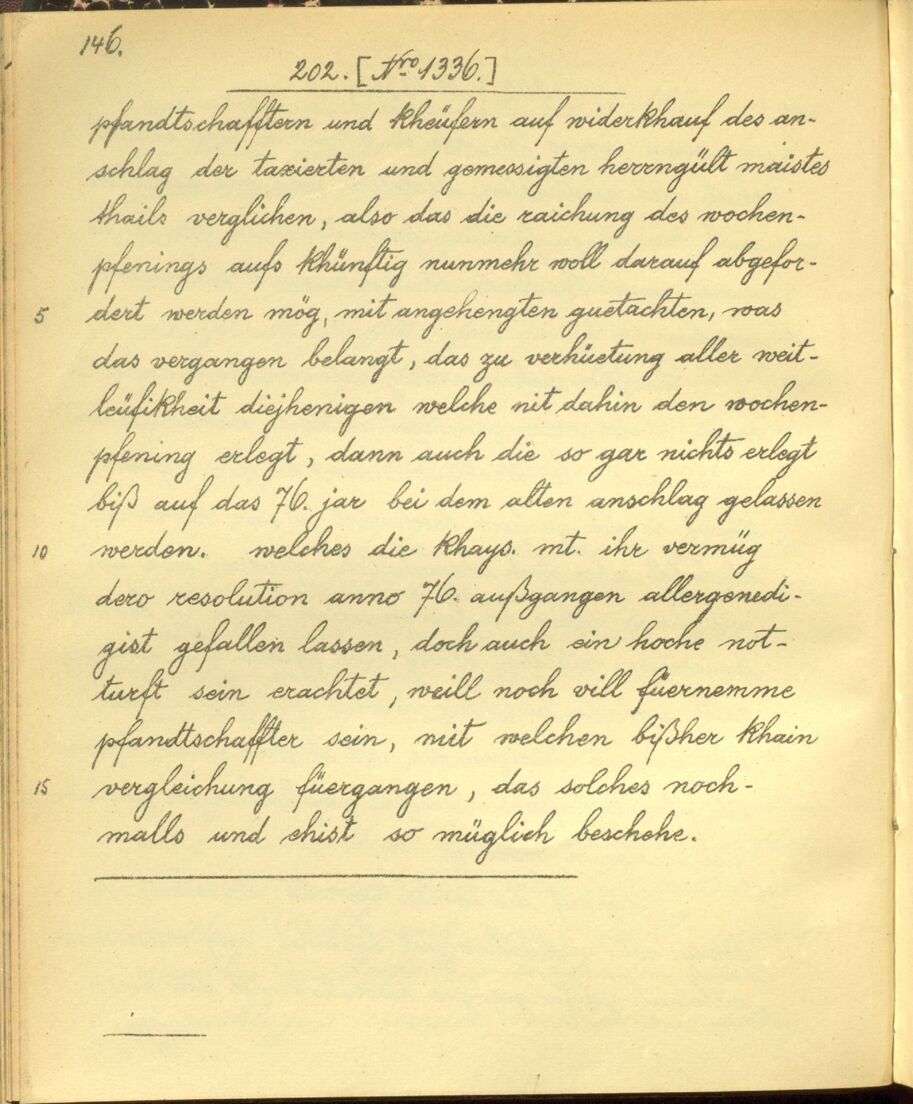 146.
202. [Nro 1336.]
pfandtschafftern und kheüfern auf widerkhauf des an-
schlag der taxierten und gemessigten herrngült maistes
thails verglichen, also das die raichung des wochen-
pfenings aufs khünftig nunmehr woll darauf abgefor-
5 dert werden mög, mit angehengten guetachten, was
das vergangen belangt, das zu verhüetung aller weit-
leüfikheit diejhenigen welche nit dahin den wochen-
pfening erlegt, dann auch die so gar nichts erlegt
biß auf das 76. jar bei dem alten anschlag gelassen
10 werden. welches die khays. mt. ihr vermüg
dero resolution anno 76. außgangen allergenedi-
gist gefallen lassen, doch auch ein hoche not-
turft sein erachtet, weill noch vill füernemme
pfandtschaffter sein, mit welchen bißher khain
15 vergleichung füergangen, das solches noch-
malls und ehist so müglich beschehe.